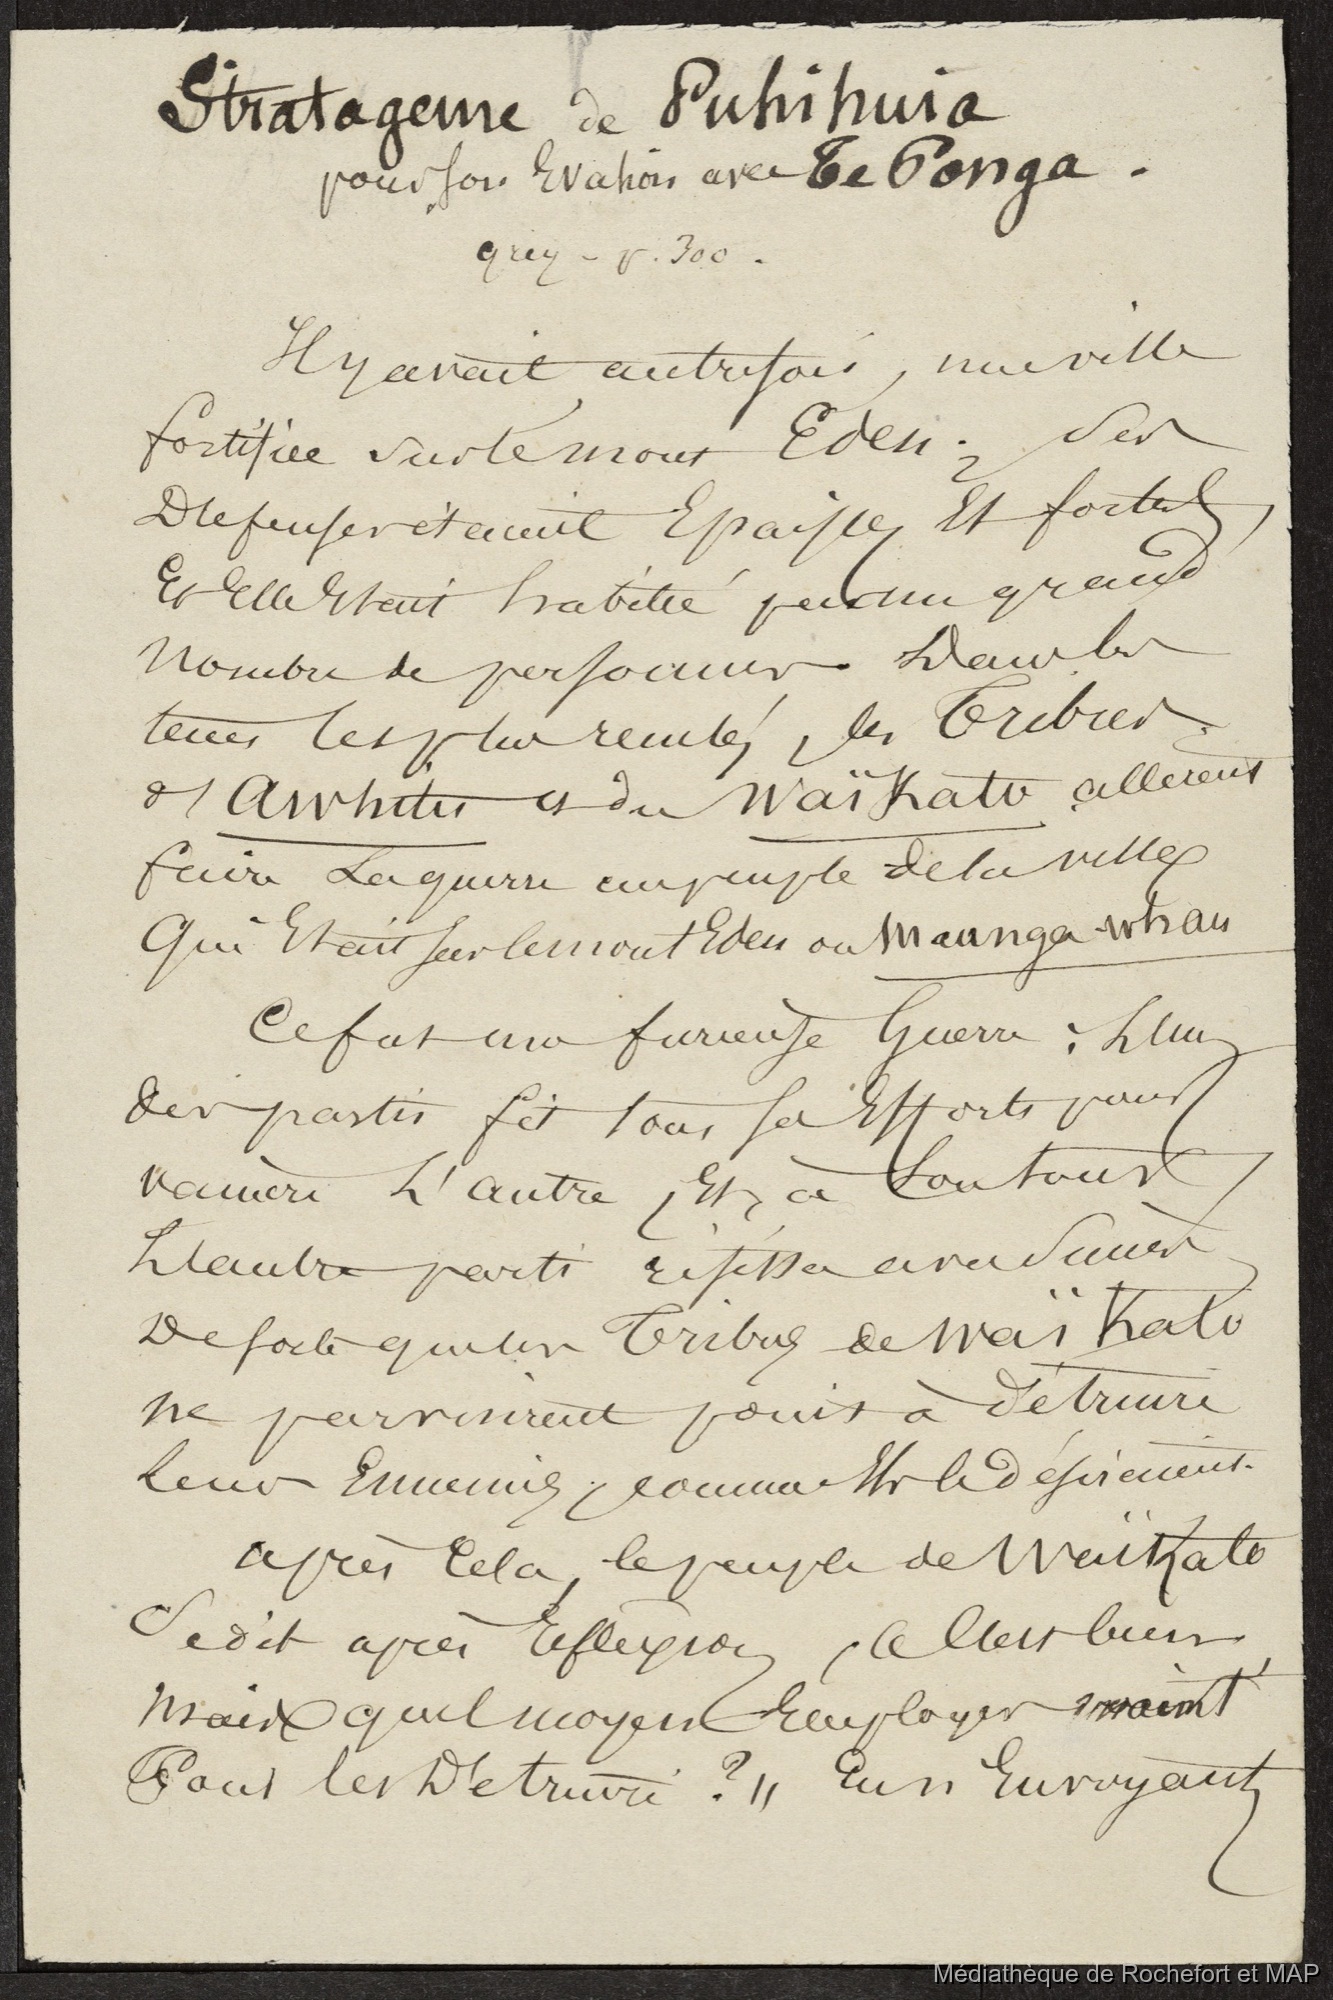 Stratageme de Puhihuia
pour son Evasion avec Te Ponga.
grey - p. 300.
Il y avait autrefois, une ville
fortifiée sur le mont Eden; ses
Defenses étaient Epaisses Et fortes,
Et Elle Etait habitée par un grand
Nombre de personnes. Dans les
tems les plus reculés, les Tribus
d'Awhitu et du Waïkato allerent
faire La guerre au peuple de la ville
Qui Etait sur le mont Eden ou Maunga-whau
Ce fut une furieuse Guerre: L'un
des partis fit tous ses Efforts pour
vaincre L'autre, Et, à son tour
L'autre parti résista avec succès
De sorte que les Tribus de Waïkato
ne parvinrent point à Détruire
Leurs Ennemis, comme Ils le désiraient.
après Cela, le peuple de Waïkato
Se dit après Reflexion, "C'est bien
Mais quel moyen Employer maint'
Pour les Détruire?" En n'Envoyant
Médiathèque de Rochefort et MAP